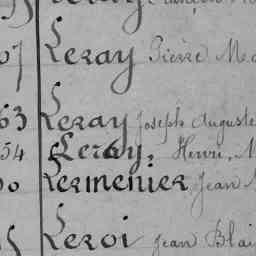 07 Leray Pierre M
63 Leray Joseph Auguste
54 Leray, Henri, M
Lermenier Jean
Leroi Jean Blai